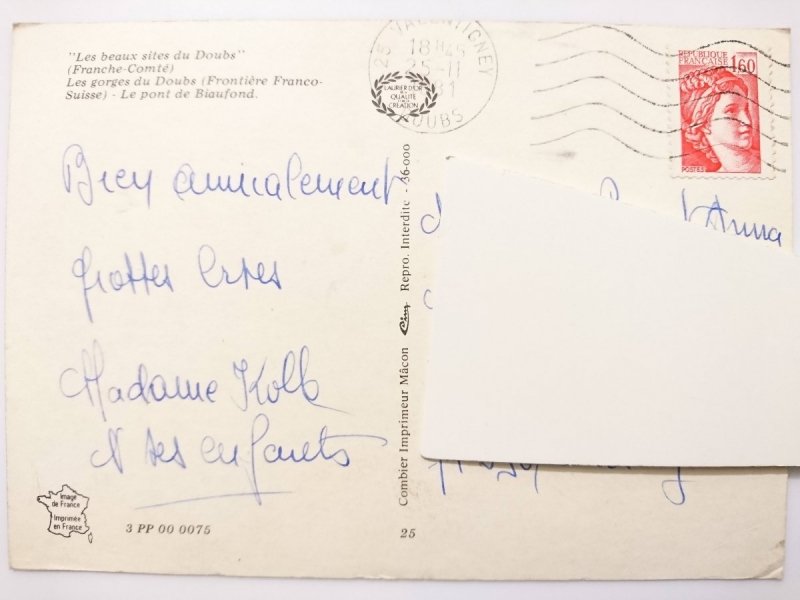 "Les beaux sites du Doubs"
(Franche-Comté)
Les gorges du Doubs (Frontière Franco-
Suisse) - Le pont de Biaufond.
25 VALENTIGNEY
18H45
25-11
DOUBS
LAURIER D'OR
DE LA
QUALITÉ
CRÉATION
RÉPUBLIQUE
FRANÇAISE
1,60
POSTES
Bien amicalement
Madame Kolb
& ses enfants
Combier Imprimeur Mâcon Cim Repro. Interdite - 36-000
d'Anna
Image
de France
Imprimée
en France
3 PP 00 0075
25